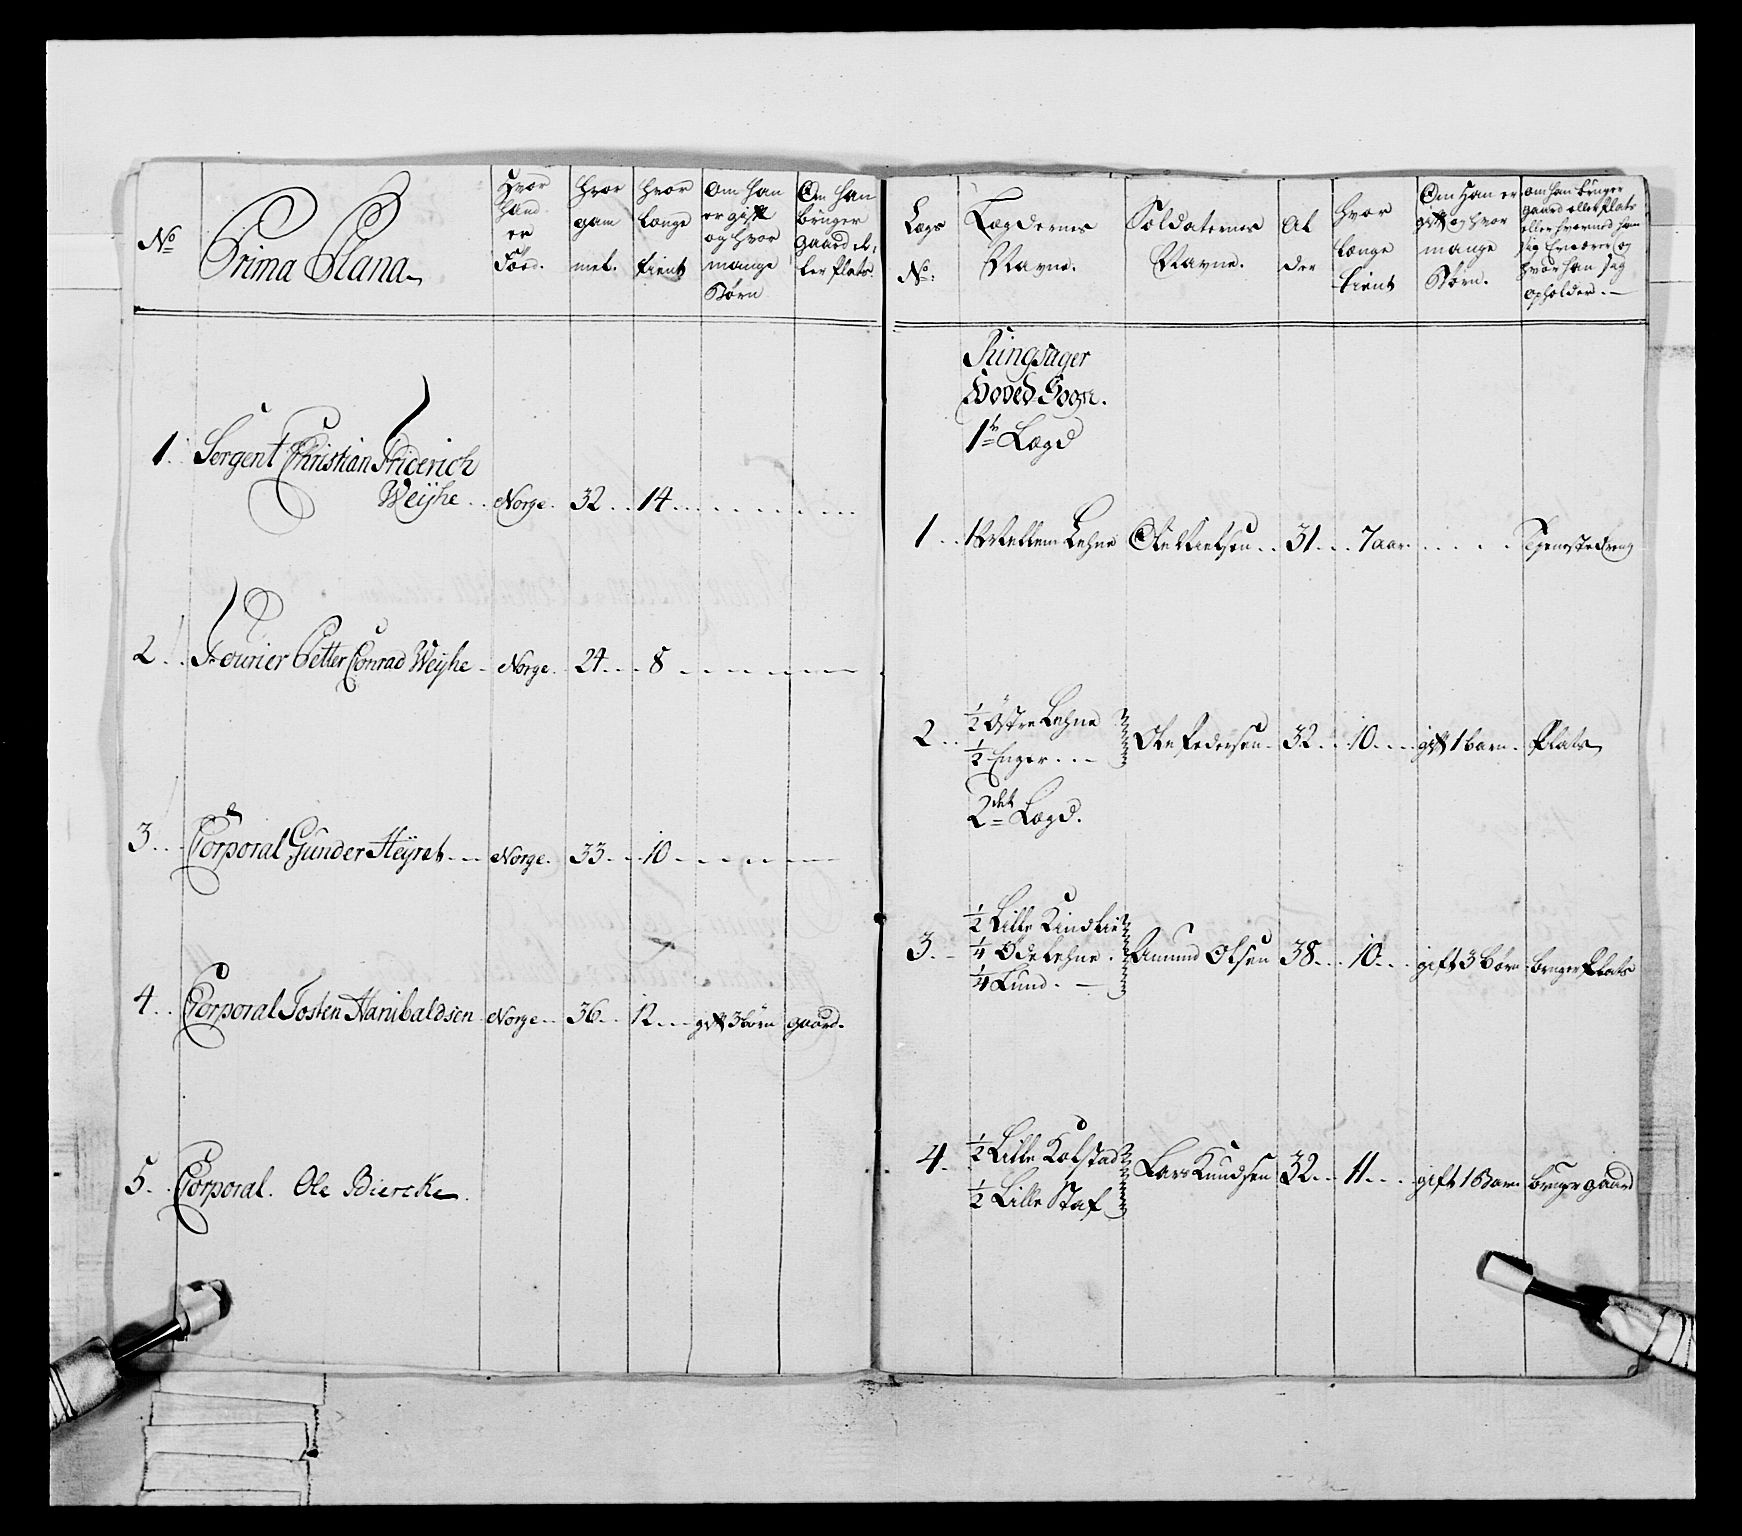 No
Prima Plana
Hvor
hand
er
Föed.
Hvor
gam
mel.
Hvor
længe
tient
Om han
er gift
og hvor
mange
Börn
Om han
brüger
gaard el:
ler Plats.
1. Sergent Christian Friderich
Weÿhe .. Norge. 32 .. 14
2 .. Fourier Petter Conrad Weÿhe - Norge. 24 ... 8
3 ... Corporal Gunder Heÿret ... Norge. 33 .. 10
4 .. Corporal Josten Hanibaldsen Norge .. 36 .. 12 ... gift 3 börn gaard.
5 .. Corporal. Ole Biercke.
Lægs
No.
Lægdernes
Navne.
Soldaternes
Navne.
Al
der
Hvor
længe
tient
Om Han er
gift og hvor
mange
Börn.
om han brüger
gaard eller Plats
eller hvormed han
sig Ernærer og
hvor han sig
opholder.
Ringsager
Hoved Sogn.
1te Lægd
1 .. 1 Mellem Lehne Ole Nielsen .. 31 ... 7 aar. Tjenestedreng
2 .. 1/2 Östre Lehne
1/2 Enger ... Ole Pedersen. 32 ... 10 ... gift 1 barn. Plats
2det Lægd.
3. 1/2 Lille Kindlie
1/4 Ödelehne. Amund Olsen 38 ... 10 ... gift 3 Börn bruger Plats
1/4 Lund.
4. 1/2 Lille Kolstad
Lars Knudsen 32 .. 11 ... gift 1 Barn bruger gaard
1/2 Lille Staf